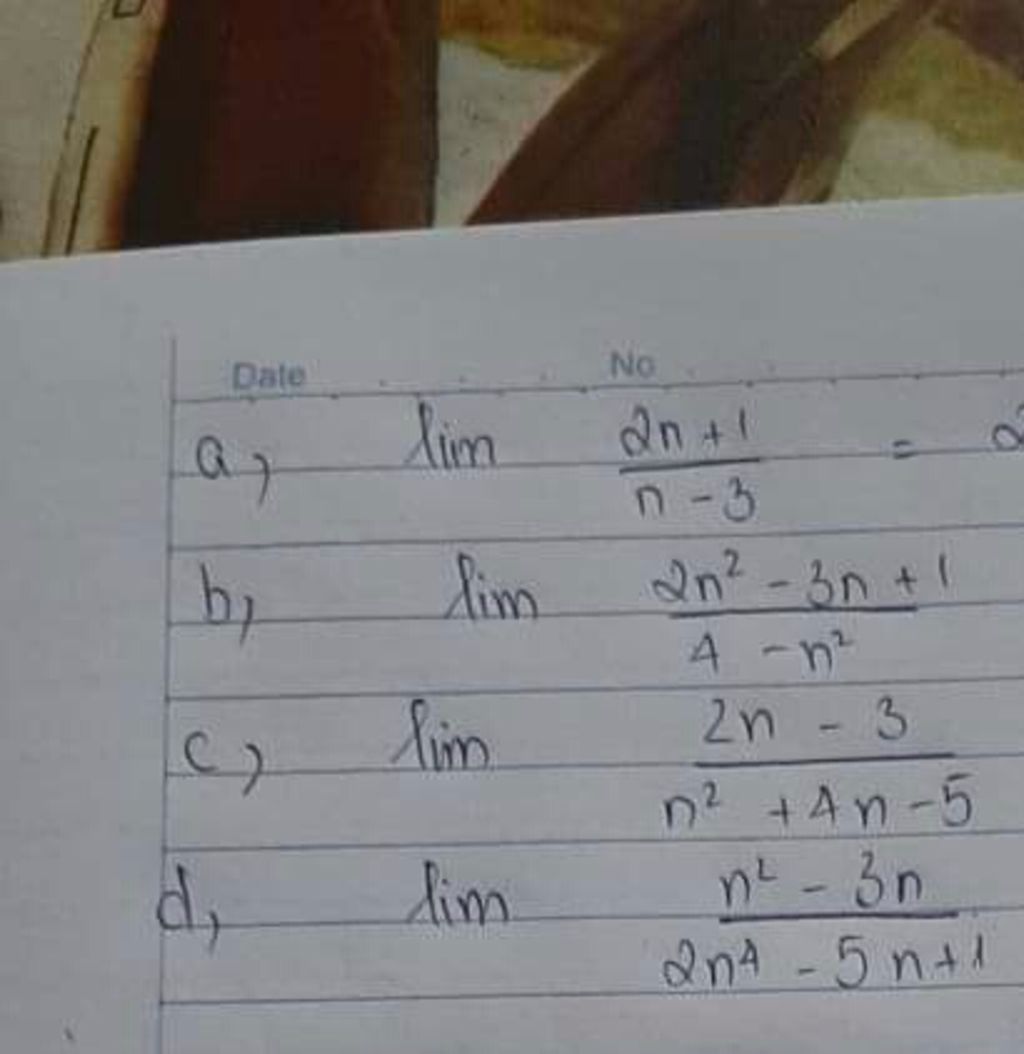 Date No
a, lim 2n + 1 / n - 3 = 2
b, lim 2n² - 3n + 1 / 4 - n²
c, lim 2n - 3 / n² + 4n - 5
d, lim n² - 3n / 2n⁴ - 5n + 1